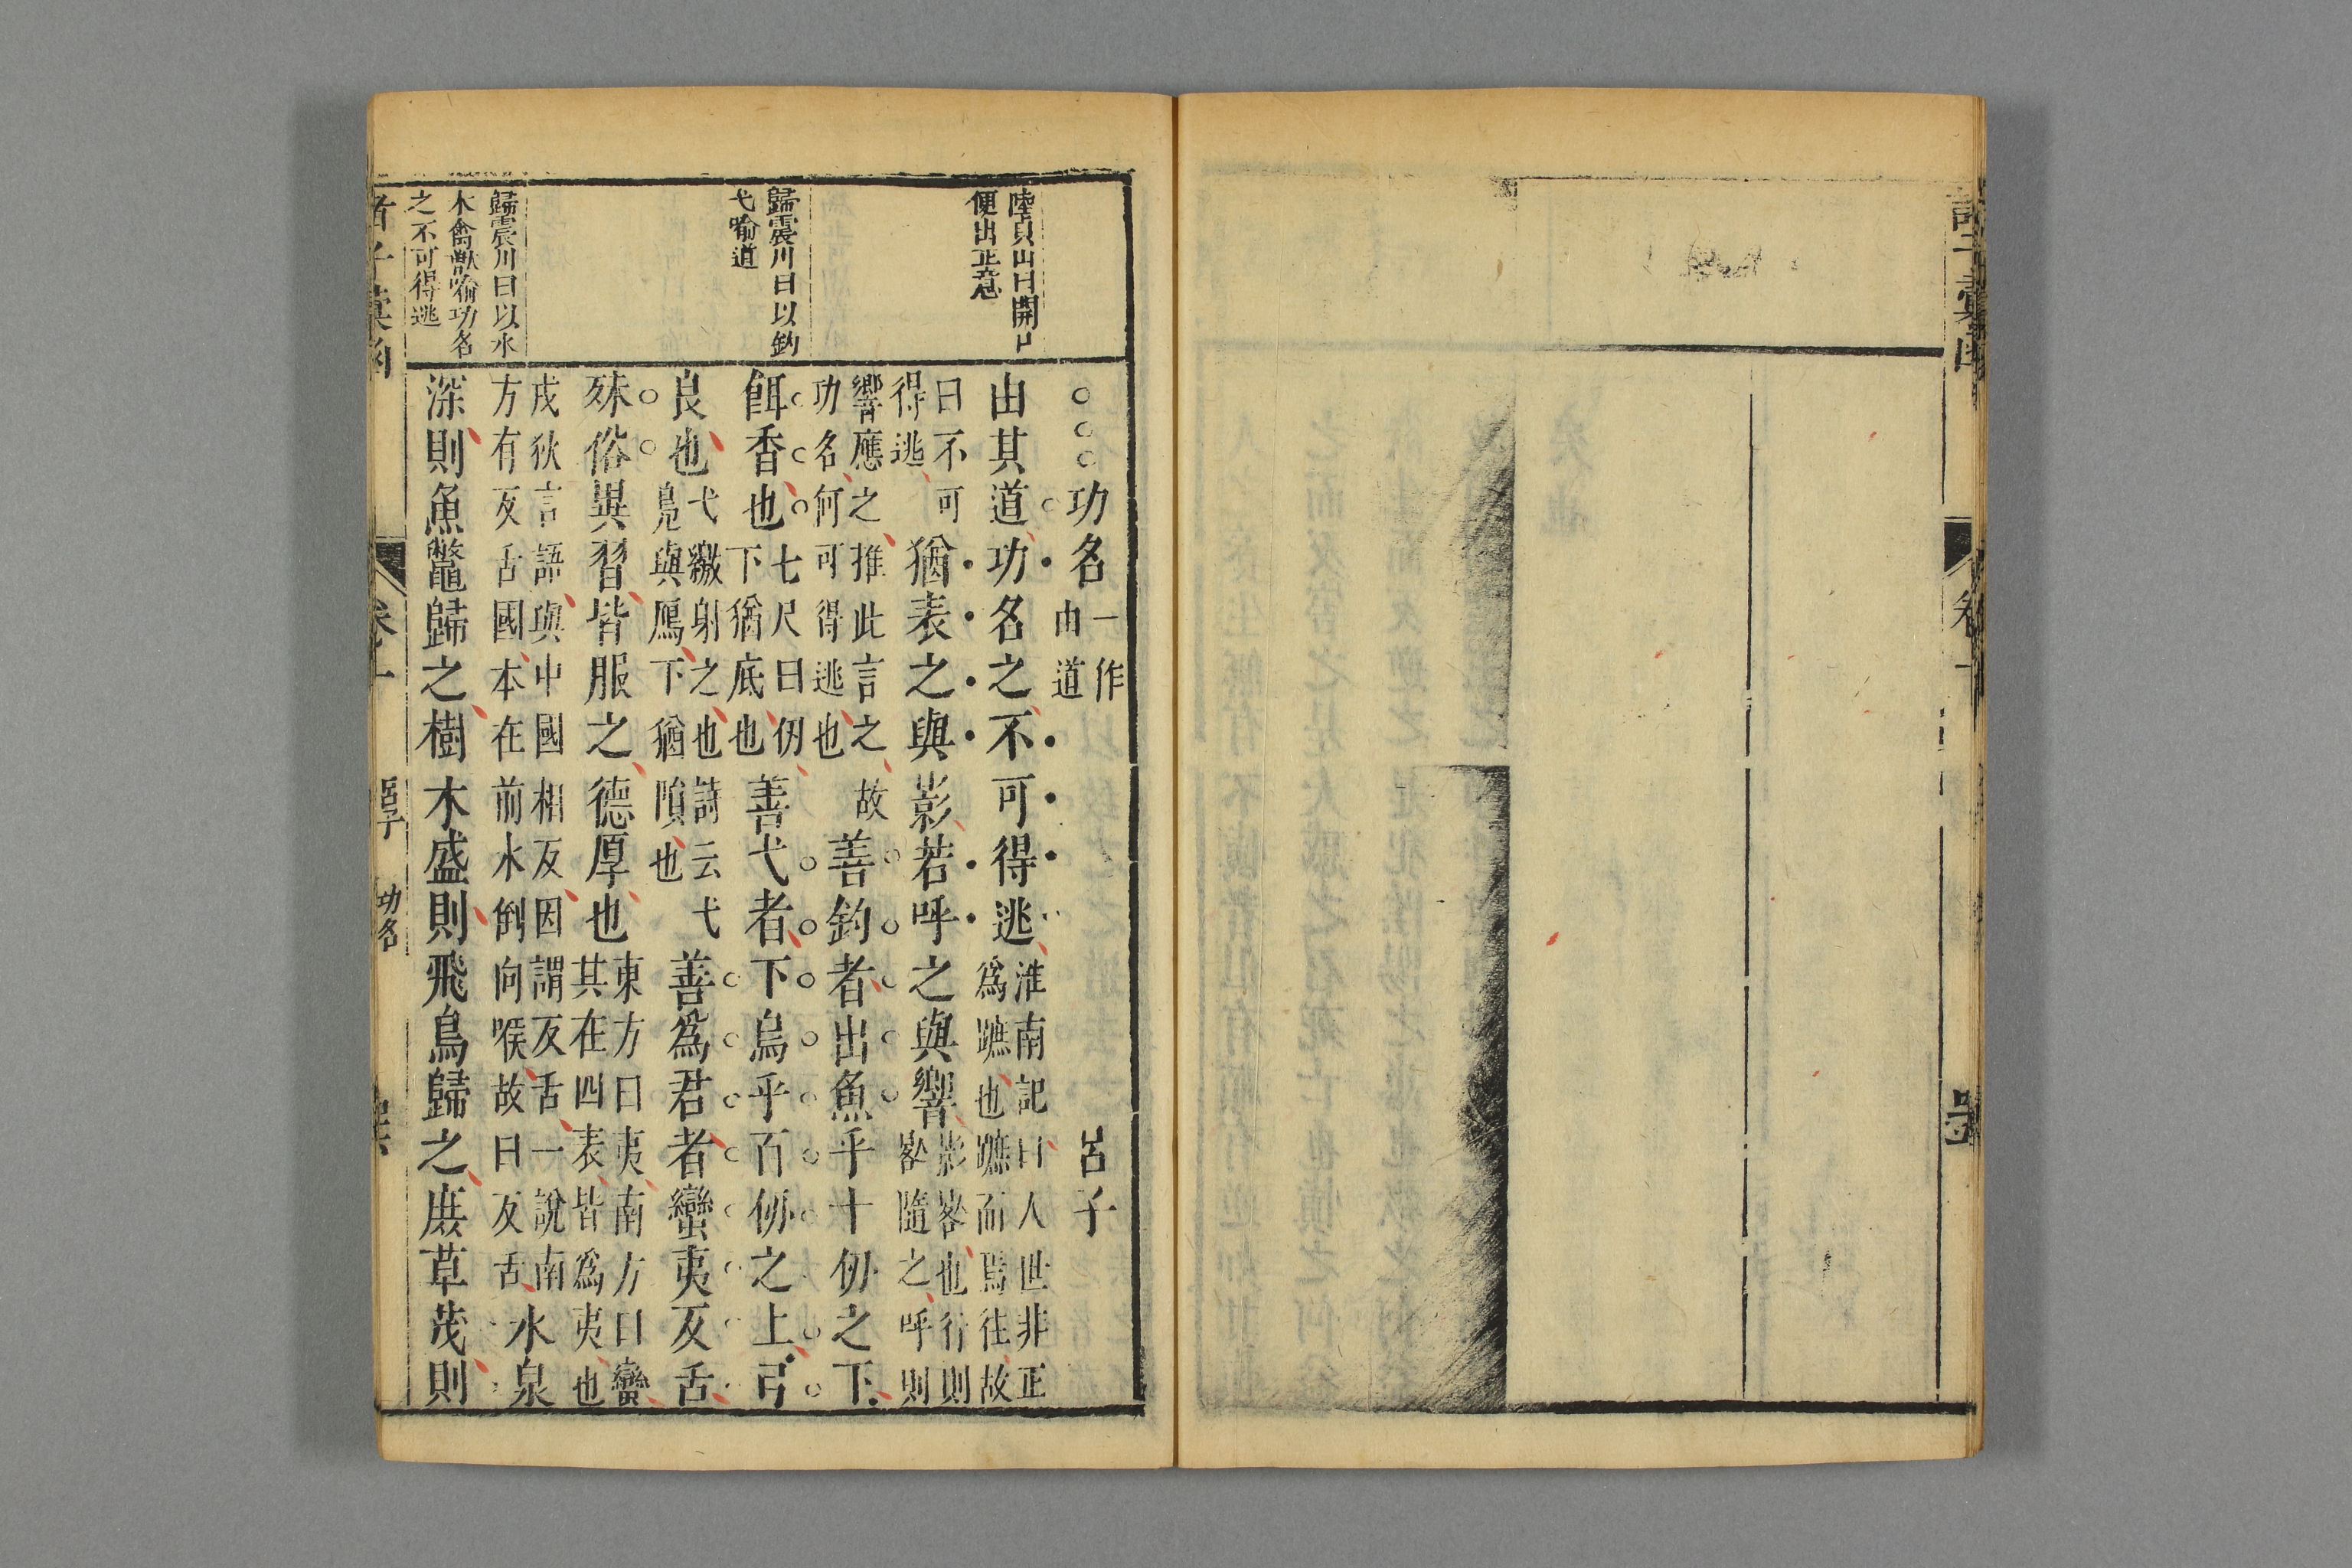 陸貞山曰開口
便出正意
歸震川曰以釣
弋喻道
歸震川曰以水
木禽獸喻功名
之不可得逃
○○○功名一作由道 呂子
由其道功名之不可得逃淮南記曰人世非正為蹠也蹠而焉往故
曰不可得逃猶表之與影若呼之與響影晷也行則晷隨之呼則
響應之推此言之故功名何可得逃也善釣者出魚乎十仞之下
餌香也七尺曰仞下猶底也善弋者下鳥乎百仞之上弓
良也弋繳射之也詩云弋鳧與鴈下猶隕也善為君者蠻夷反舌
殊俗異習皆服之德厚也東方曰夷南方曰蠻其在四表皆為夷也
戎狄言語與中國相反因謂反舌一說南方有反舌國本在前末倒向喉故曰反舌水泉
深則魚鼈歸之樹木盛則飛鳥歸之庶草茂則
卷十
功名